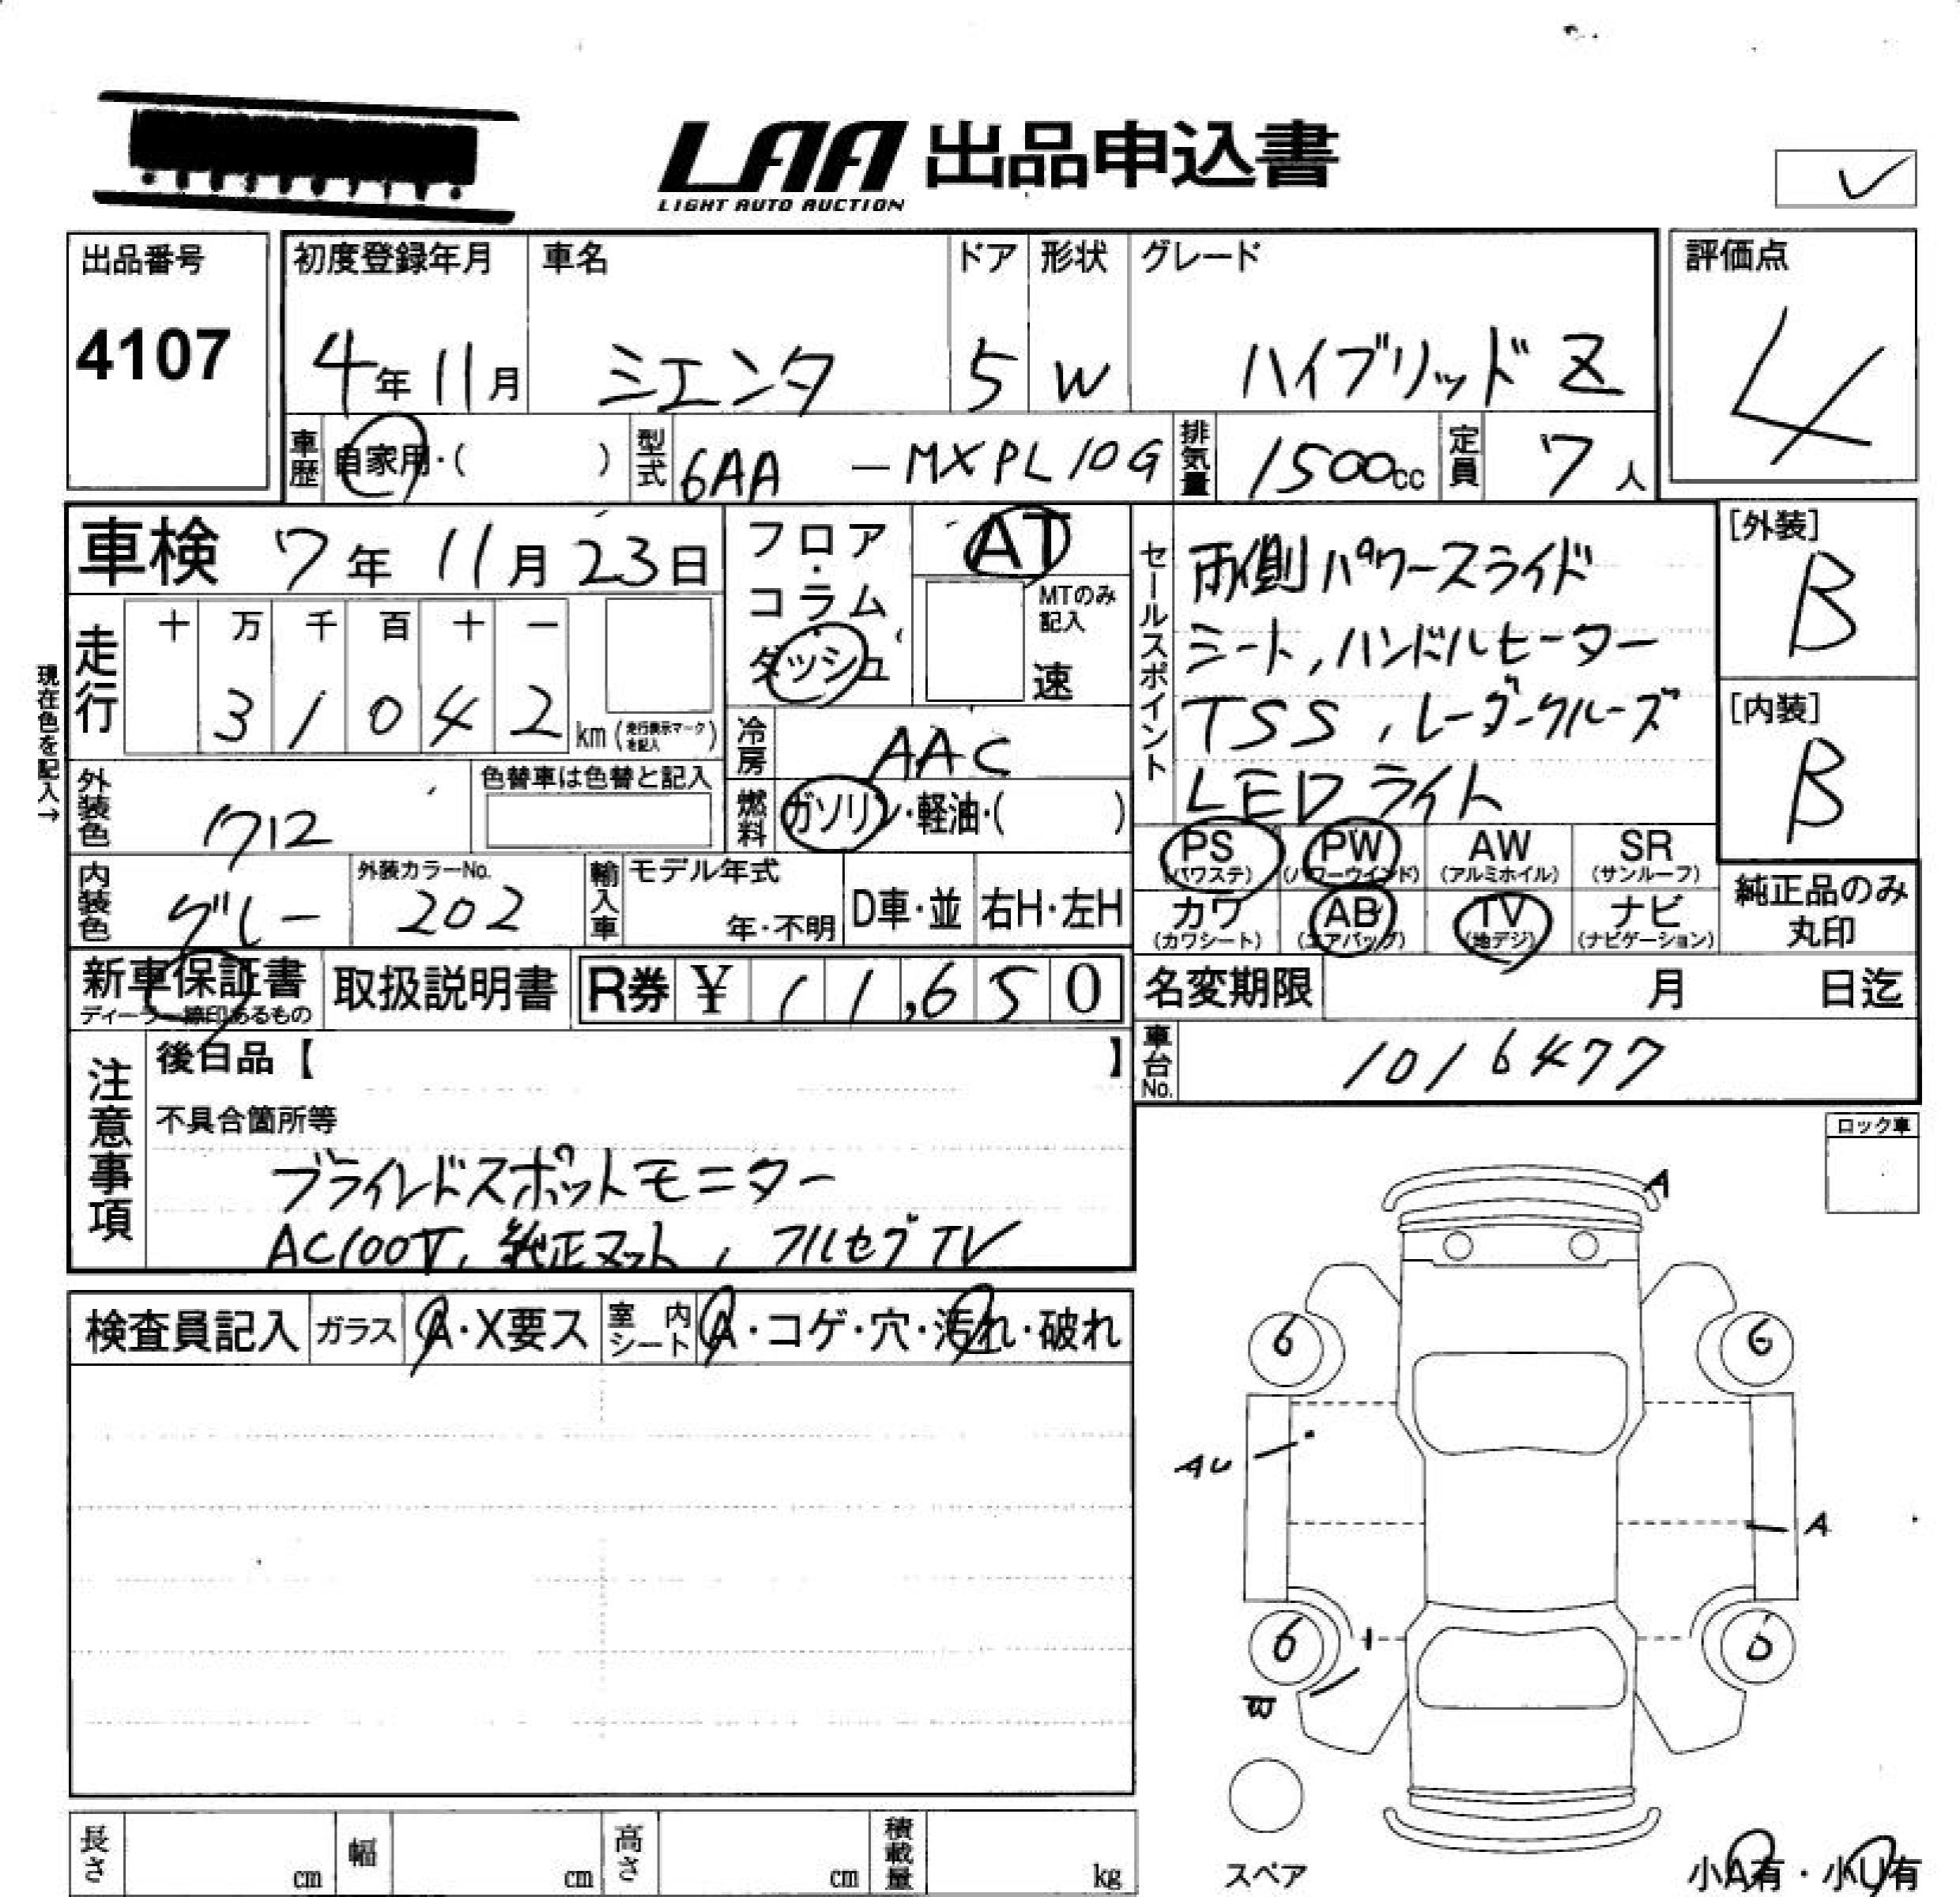 LAA 出品申込書
LIGHT AUTO AUCTION
出品番号 4107
初度登録年月 4年11月
車名 シエンタ
ドア 5
形状 W
グレード ハイブリッド Z
評価点 4
車歴 自家用・( )
型式 6AA - MXPL10G
排気量 1500cc
定員 7人
車検 7年11月23日
フロア・コラム・ダッシュ
AT
MTのみ記入
速
セールスポイント
両側パワースライド
シート,ハンドルヒーター
TSS,レーダークルーズ
LEDライト
[外装] B
[内装] B
現在色を記入→
走行
十 万 千 百 十 一
3 1 0 4 2 km (走行表示マークを記入)
冷房 AAC
外装色 クロ
色替車は色替と記入
燃料 ガソリン・軽油・( )
PS (パワステ) PW (パワーウインド) AW (アルミホイル) SR (サンルーフ)
内装色 グレー
外装カラーNo. 202
輸入車 モデル年式 年・不明
D車・並 右H・左H
カワ (カワシート) AB (エアバッグ) TV (地デジ) ナビ (ナビゲーション)
純正品のみ
丸印
新車保証書
取扱説明書
R券 ¥ 11,650
名変期限 月 日迄
車台No. 1016477
注意事項
後日品【 】
不具合箇所等
ブラインドスポットモニター
AC100V,純正マット,フルセグTV
ロック車
A
検査員記入 ガラス A・X要ス 室内シート A・コゲ・穴・汚れ・破れ
6 6
AU
A
6 6
スペア
長さ cm 幅 cm 高さ cm 積載量 kg
小A有・小U有